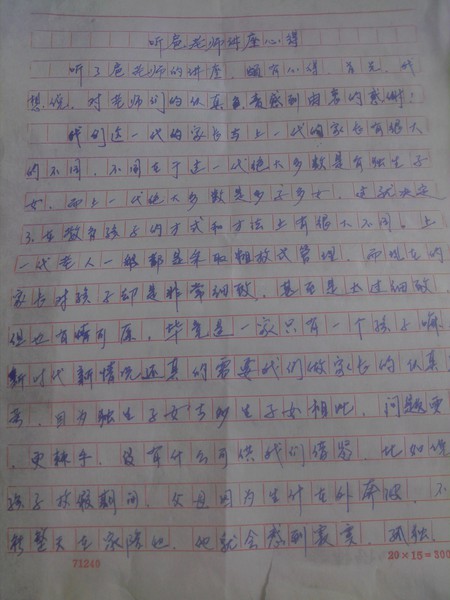 听危老师讲座心得
听了危老师的讲座，颇有心得，首先，我
想说，对老师们的认真负责感到由衷的感谢！
我们这一代的家长与上一代的家长有很大
的不同，不同在于这一代绝大多数是有独生子
女，而上一代绝大多数是多子多女，这就决定
了在教育孩子的方式和方法上有很大不同。上
一代老人一般都是采取粗放式管理，而现在的
家长对孩子却是非常细致，甚至是太过细致，
但也有情可原，毕竟是一家只有一个孩子嘛
新时代新情况还真的需要我们做家长的认真
，因为独生子女与多生子女相比，问题更
，更棘手，没有什么可供我们借鉴，比如说
孩子放假期间，父母因为生计在外奔波，不
能整天在家陪他，他就会感到寂寞，孤独
71240
20×15=300